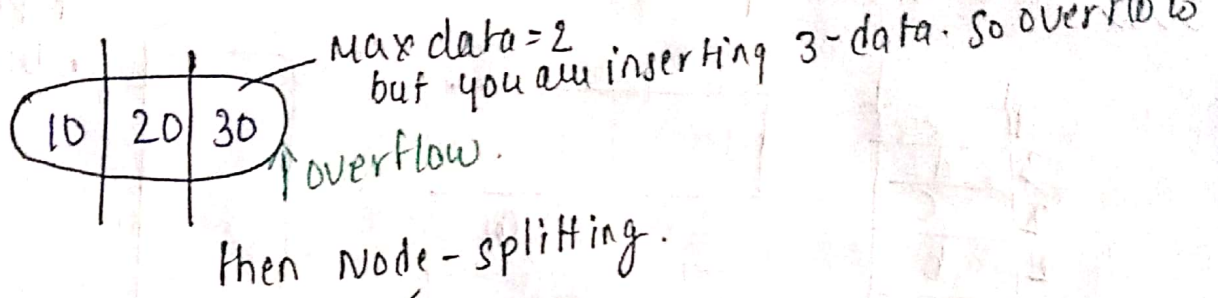 Max data = 2
but you are inserting 3-data. So overflow
10 | 20 | 30
↑ overflow.
then Node-splitting.